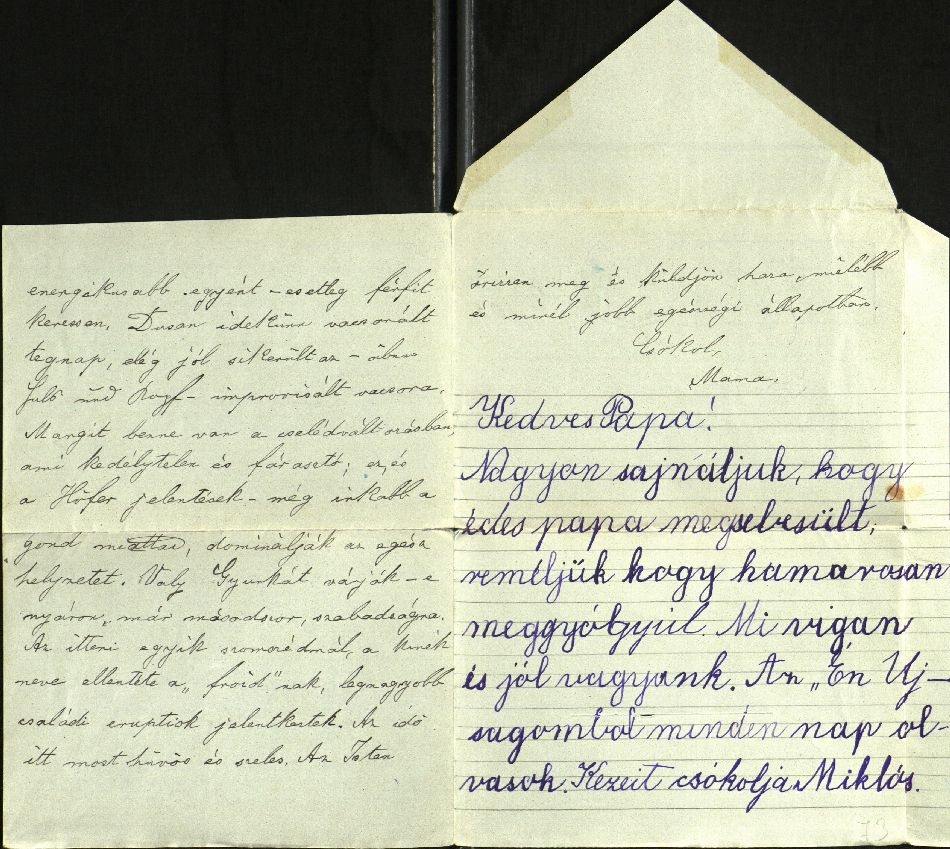 energikusabb egyént – esetleg férfit
keressen. Dusan idekünn vacsorált
tegnap, elég jól sikerült az –
– improvisált vacsora.
Margit benne van a cselédváltozásban,
ami kedélytelen és fárasztó; ez, és
a Höfer jelentések – még inkább a
gond miattad, dominálják az egész
helyzetet. Valy Gyurkát várják – e
nyáron, már másodszor, szabadságra.
Az itteni egyik szomszédnál, a kinek
neve ellentéte a „froid"nak, legnagyobb
családi eruptiók jelentkeztek. Az idő
itt most hűvös és szeles. Az Isten
őrizzen meg és küldjön haza, mielőbb
és minél jobb egészségi állapotban.
Csókol,
Mama.
Kedves Papa!
Nagyon sajnáljuk, hogy
édes papa megsebesült,
reméljük hogy hamarosan
meggyógyúl. Mi vigan
és jól vagyunk. Az „Én Uj-
sagombol minden nap ol-
vasok. Kezeit csókolja Miklós.
73